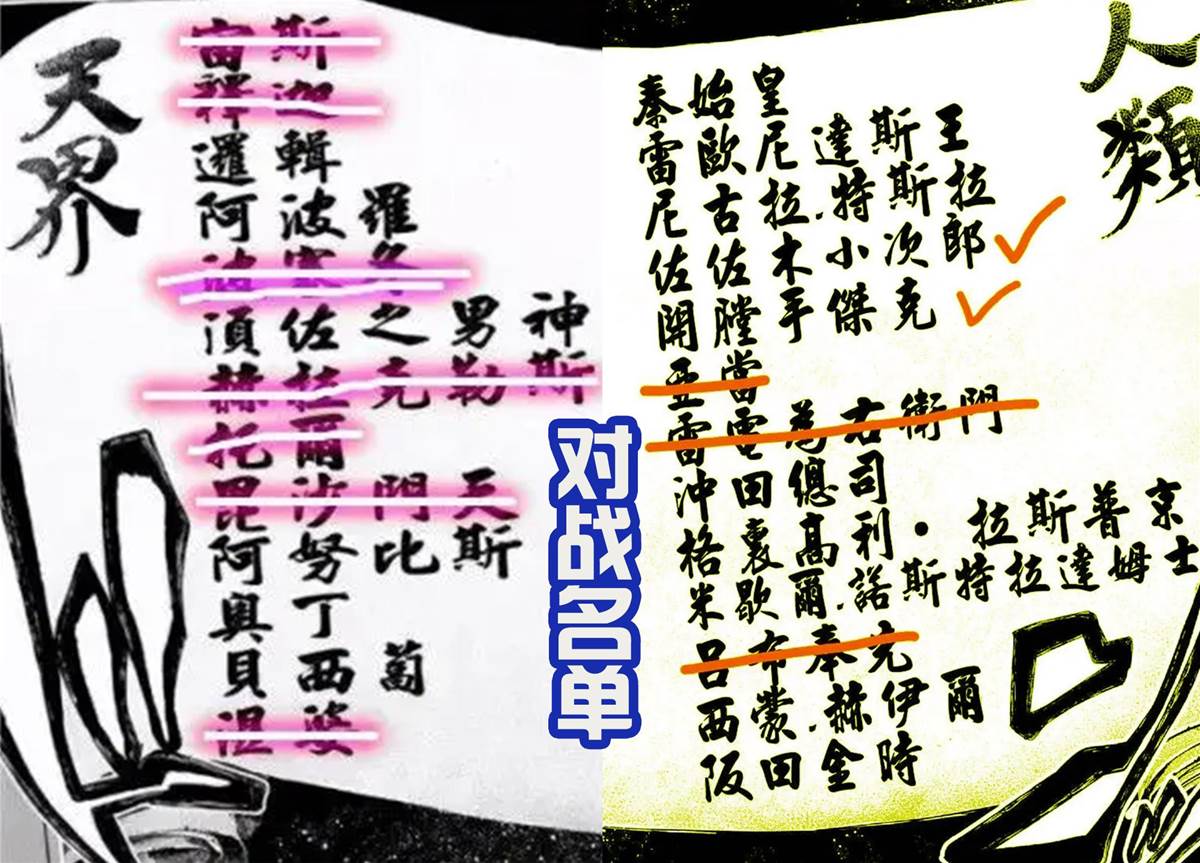 天界
宙斯
釋迦
邏輯
阿波羅
波塞冬
須佐之男神
赫拉克勒斯
托爾
毘沙門天
阿努比斯
奧丁
貝西蔔
湿婆
对战名单
人類
秦始皇
雷歐尼達斯王
尼古拉.特斯拉
佐佐木小次郎
開膛手傑克
亞當
雷電為右衛門
沖田總司
格裏高利·拉斯普京
米歇爾.諾斯特拉達姆士
呂布奉先
西蒙.赫伊爾
阪田金時